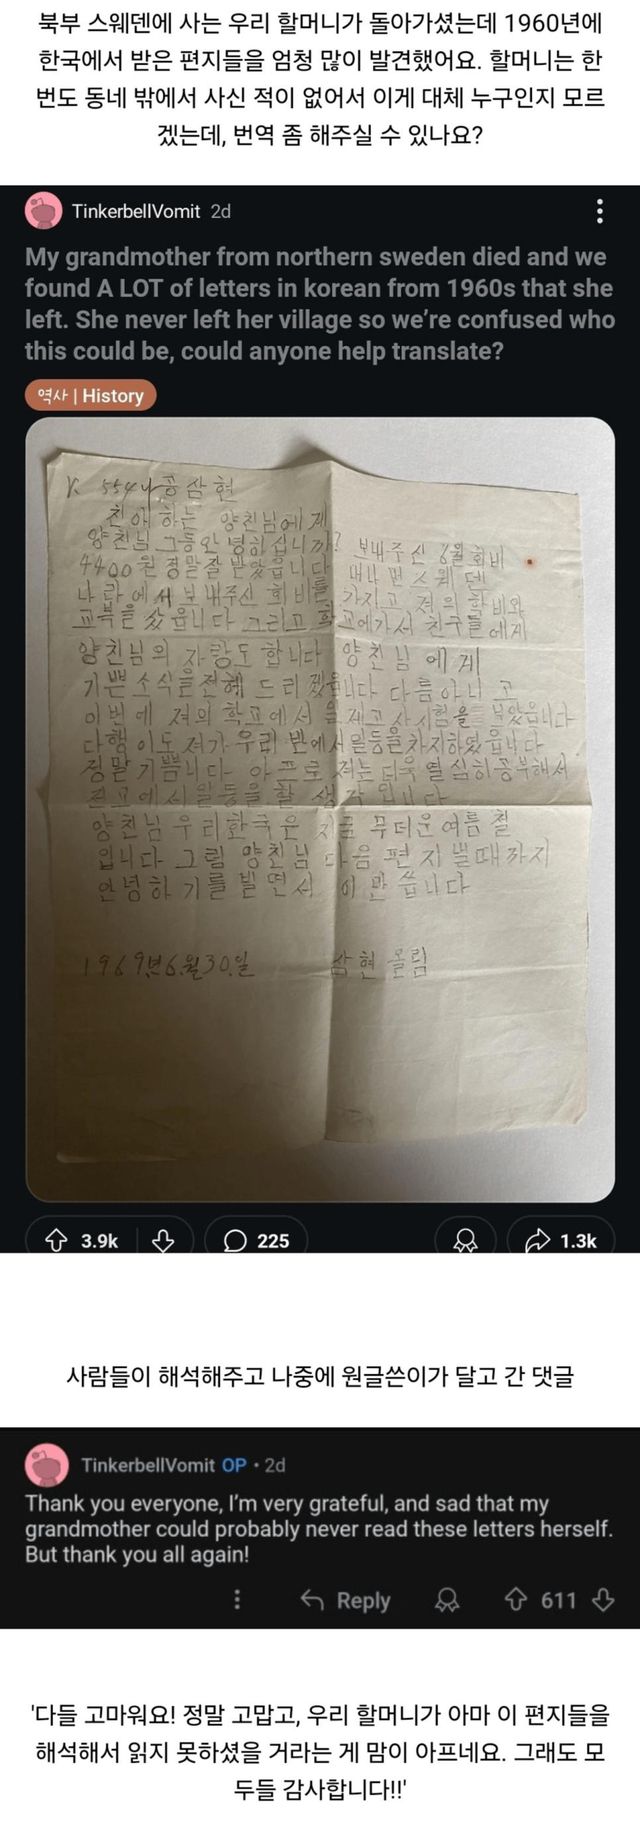 북부 스웨덴에 사는 우리 할머니가 돌아가셨는데 1960년에
한국에서 받은 편지들을 엄청 많이 발견했어요. 할머니는 한
번도 동네 밖에서 사신 적이 없어서 이게 대체 누구인지 모르
겠는데, 번역 좀 해주실 수 있나요?
TinkerbellVomit 2d
My grandmother from northern sweden died and we
found A LOT of letters in korean from 1960s that she
left. She never left her village so we're confused who
this could be, could anyone help translate?
역사 | History
공삼현
친애하는 양친님에게
양친님 그동안 녕하십니까? 보내주신 6월 회비
4400원 정말 잘 받았읍니다 머나먼 스웨덴
나라에서 보내주신 회비를 가지고 져의 학비와
교복을 샀읍니다 그리고 학교에가서 친구들에게
양친님의 자랑도 합니다 양친님에게
기쁜소식을 전해 드리겠읍니다 다름아니고
이번에 져의 학교에서 일제고사시험을 보았읍니다
다행이도 져가 우리 반에서 일등을차지하였읍니다
정말기쁩니다 아프로 저는 더욱 열심히공부해서
전교에서 일등을 할 생각입니다
양친님 우리한국은 지금 무더운 여름철
입니다 그럼 양친님 다음 편지 낼때까지
안녕하기를 빌면서 이만 씁니다
1969년 6.월 30.일 삼현 올림
3.9k 225 1.3k
사람들이 해석해주고 나중에 원글쓴이가 달고 간 댓글
TinkerbellVomit OP • 2d
Thank you everyone, I'm very grateful, and sad that my
grandmother could probably never read these letters herself.
But thank you all again!
Reply 611
'다들 고마워요! 정말 고맙고, 우리 할머니가 아마 이 편지들을
해석해서 읽지 못하셨을 거라는 게 맘이 아프네요. 그래도 모
두들 감사합니다!!'